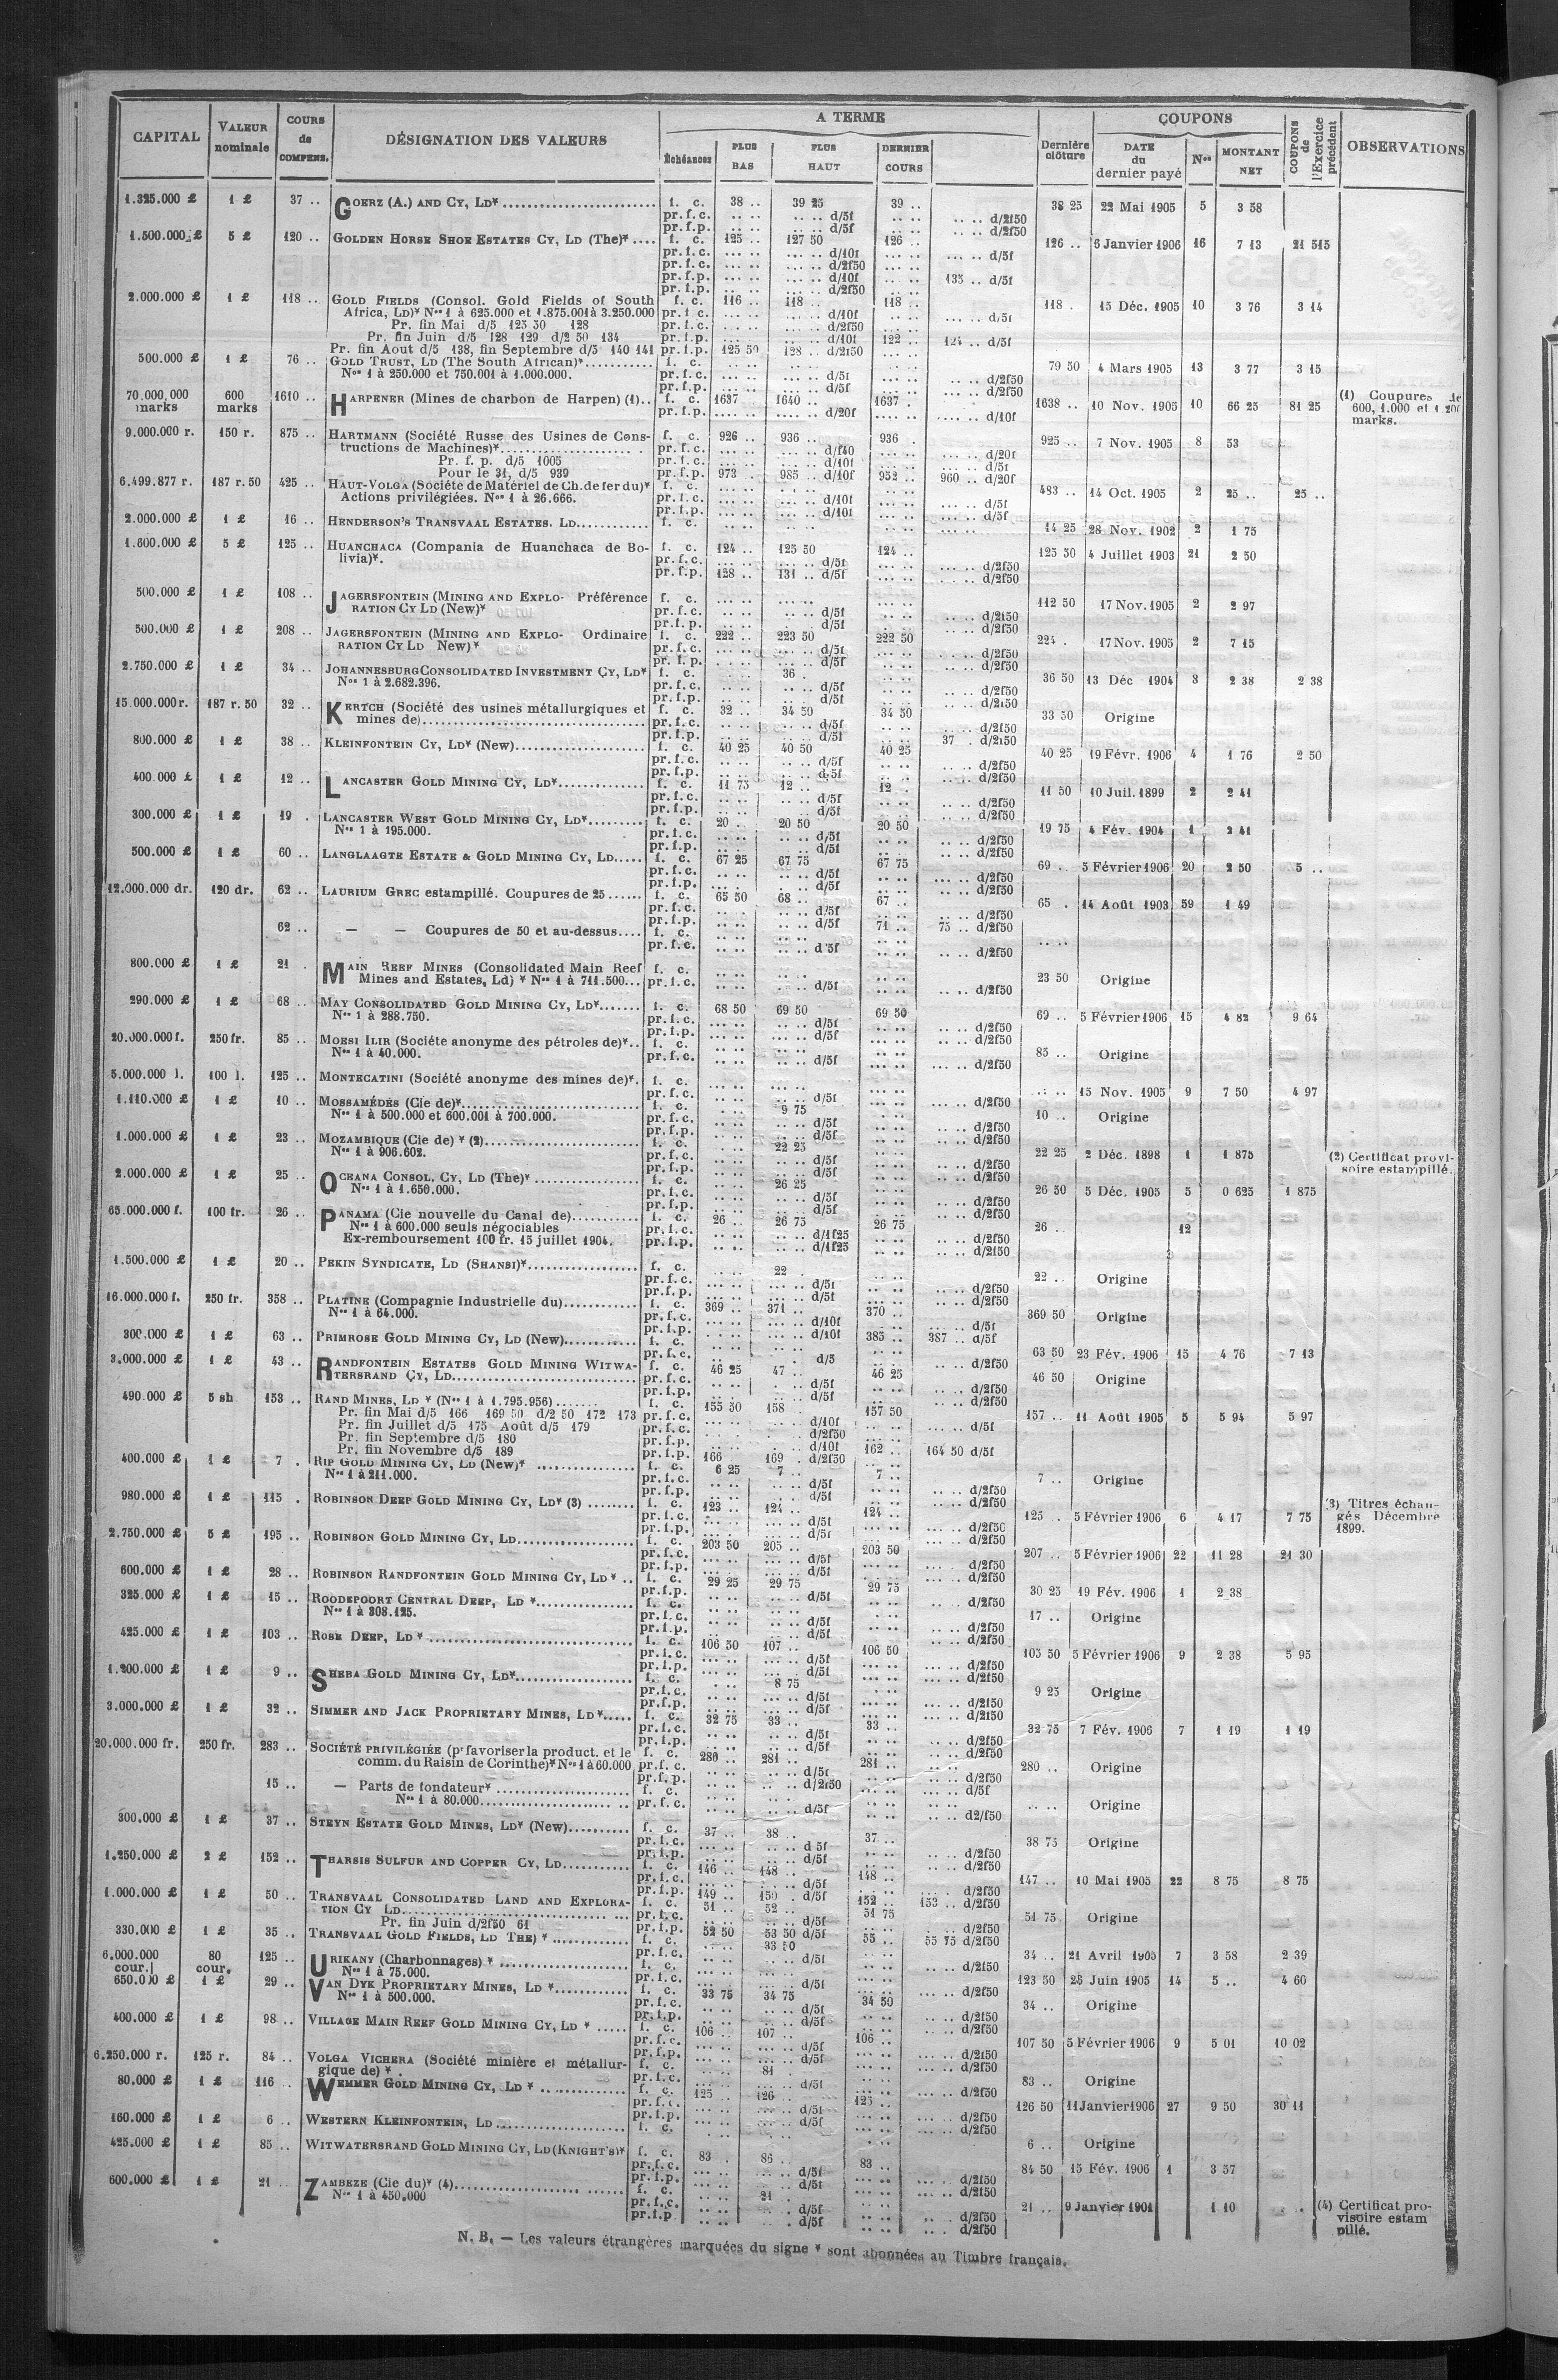 CAPITAL | VALEUR nominale | COURS de COMPENS. | DÉSIGNATION DES VALEURS | A TERME | Dernière clôture | COUPONS | COUPONS de l'Exercice précédent | OBSERVATIONS
Échéances | PLUS BAS | PLUS HAUT | DERNIER COURS | DATE du dernier payé | Nos | MONTANT NET
1.325.000 £ | 1 £ | 37 .. | GOERZ (A.) AND CY, LD* | f. c. | 38 .. | 39 25 | 39 .. | 38 25 | 22 Mai 1905 | 5 | 3 58
pr. f. c. | d/5f | d/2f50
pr. f. p. | d/5f | d/2f50
1.500.000 £ | 5 £ | 120 .. | GOLDEN HORSE SHOE ESTATES CY, LD (The)* | f. c. | 125 .. | 127 50 | 126 .. | 126 .. | 6 Janvier 1906 | 16 | 7 13 | 21 515
pr. f. c. | d/10f | d/5f
pr. f. c. | d/2f50
pr. f. p. | d/10f | 135 .. d/5f
pr. f. p. | d/2f50
2.000.000 £ | 1 £ | 118 .. | GOLD FIELDS (Consol. Gold Fields of South | f. c. | 116 .. | 118 .. | 118 .. | 118 . | 15 Déc. 1905 | 10 | 3 76 | 3 14
Africa, LD)* Nos 1 à 625.000 et 1.875.001 à 3.250.000 | pr. f. c. | d/10f | d/5f
Pr. fin Mai d/5 125 50 128 | pr. f. c. | d/2f50
Pr. fin Juin d/5 128 129 d/2 50 134 | pr. f. p. | d/10f | 122 .. | 124 .. d/5f
Pr. fin Aout d/5 138, fin Septembre d/5 140 141 | pr. f. p. | 125 50 | 128 .. d/2f50
500.000 £ | 1 £ | 76 .. | GOLD TRUST, LD (The South African)* | f. c. | 79 50 | 4 Mars 1905 | 13 | 3 77 | 3 15
Nos 1 à 250.000 et 750.001 à 1.000.000. | pr. f. c. | d/5f | d/2f50
pr. f. p. | d/5f | d/2f50
70.000.000 marks | 600 marks | 1610 .. | HARPENER (Mines de charbon de Harpen) (1) | f. c. | 1637 | 1640 .. | 1637 . | 1638 .. | 10 Nov. 1905 | 10 | 66 25 | 81 25 | (1) Coupures de 600, 1.000 et 1.200 marks.
pr. f. p. | d/20f | d/10f
9.000.000 r. | 150 r. | 875 .. | HARTMANN (Société Russe des Usines de Cons- | f. c. | 926 .. | 936 .. | 936 . | 925 .. | 7 Nov. 1905 | 8 | 53
tructions de Machines)* | pr. f. c. | d/f40 | d/20f
Pr. f. p. d/5 1005 | pr. f. c. | d/10f | d/5f
Pour le 31, d/5 939 | pr. f. p. | 973 . | 985 .. d/10f | 952 .. | 960 .. d/20f
6.499.877 r. | 187 r. 50 | 425 .. | HAUT-VOLGA (Société de Matériel de Ch. de fer du)* | f. c. | 483 .. | 14 Oct. 1905 | 2 | 25 .. | 25 ..
Actions privilégiées. Nos 1 à 26.666. | pr. f. c. | d/10f | d/5f
pr. f. p. | d/10f | d/5f
2.000.000 £ | 1 £ | 16 .. | HENDERSON'S TRANSVAAL ESTATES. LD | f. c. | 14 25 | 28 Nov. 1902 | 2 | 1 75
1.600.000 £ | 5 £ | 125 .. | HUANCHACA (Compania de Huanchaca de Bo- | f. c. | 124 .. | 125 50 | 124 .. | 125 50 | 4 Juillet 1903 | 21 | 2 50
livia)*. | pr. f. c. | d/5f | d/2f50
pr. f. p. | 128 .. | 131 .. d/5f | d/2f50
500.000 £ | 1 £ | 108 .. | JAGERSFONTEIN (MINING AND EXPLO- Préférence | f. c. | 112 50 | 17 Nov. 1905 | 2 | 2 97
RATION CY LD (New)* | pr. f. c. | d/5f | d/2f50
pr. f. p. | d/5f | d/2f50
500.000 £ | 1 £ | 208 .. | JAGERSFONTEIN (MINING AND EXPLO- Ordinaire | f. c. | 222 .. | 223 50 | 222 50 | 224 . | 17 Nov. 1905 | 2 | 7 15
RATION CY LD New)* | pr. f. c. | d/5f | d/2f50
pr. f. p. | d/5f | d/2f50
2.750.000 £ | 1 £ | 34 .. | JOHANNESBURG CONSOLIDATED INVESTMENT CY, LD* | f. c. | 36 . | 36 50 | 13 Déc 1904 | 3 | 2 38 | 2 38
Nos 1 à 2.682.396. | pr. f. c. | d/5f | d/2f50
pr. f. p. | d/5f | d/2f50
15.000.000 r. | 187 r. 50 | 32 .. | KERTCH (Société des usines métallurgiques et | f. c. | 32 .. | 34 50 | 34 50 | 33 50 | Origine
mines de) | pr. f. c. | d/5f | d/2f50
pr. f. p. | d/5f | 37 . d/2f50
800.000 £ | 1 £ | 38 .. | KLEINFONTEIN CY, LD* (New) | f. c. | 40 25 | 40 50 | 40 25 | 40 25 | 19 Févr. 1906 | 4 | 1 76 | 2 50
pr. f. c. | d/5f | d/2f50
pr. f. p. | d/5f | d/2f50
400.000 £ | 1 £ | 12 .. | LANCASTER GOLD MINING CY, LD* | f. c. | 11 75 | 12 .. | 12 . | 11 50 | 10 Juil. 1899 | 2 | 2 41
pr. f. c. | d/5f | d/2f50
pr. f. p. | d/5f | d/2f50
300.000 £ | 1 £ | 19 . | LANCASTER WEST GOLD MINING CY, LD* | f. c. | 20 .. | 20 50 | 20 50 | 19 75 | 4 Fév. 1904 | 1 | 2 41
Nos 1 à 195.000. | pr. f. c. | d/5f | d/2f50
pr. f. p. | d/5f | d/2f50
500.000 £ | 1 £ | 60 .. | LANGLAAGTE ESTATE & GOLD MINING CY, LD | f. c. | 67 25 | 67 75 | 67 75 | 69 .. | 5 Février 1906 | 20 | 2 50 | 5 ..
pr. f. c. | d/5f | d/2f50
pr. f. p. | d/5f | d/2f50
12.000.000 dr. | 120 dr. | 62 .. | LAURIUM GREC estampillé. Coupures de 25 | f. c. | 65 50 | 68 .. | 67 .. | 65 . | 14 Août 1903 | 59 | 1 49
pr. f. c. | d/5f | d/2f50
pr. f. p. | d/5f | 71 .. | 75 .. d/2f50
62 .. | — — Coupures de 50 et au-dessus | f. c.
pr. f. c. | d 5f | d/2f50
800.000 £ | 1 £ | 21 . | MAIN REEF MINES (Consolidated Main Reef | f. c. | 23 50 | Origine
Mines and Estates, Ld) * Nos 1 à 711.500 | pr. f. c. | d/5f | d/2f50
290.000 £ | 1 £ | 68 .. | MAY CONSOLIDATED GOLD MINING CY, LD* | f. c. | 68 50 | 69 50 | 69 50 | 69 .. | 5 Février 1906 | 15 | 4 82 | 9 64
Nos 1 à 288.750. | pr. f. c. | d/5f | d/2f50
pr. f. p. | d/5f | d/2f50
20.000.000 f. | 250 fr. | 85 .. | MOESI ILIR (Sociéte anonyme des pétroles de)* | f. c. | 85 .. | Origine
Nos 1 à 40.000. | pr. f. c. | d/5f | d/2f50
5.000.000 l. | 100 l. | 125 .. | MONTECATINI (Société anonyme des mines de)*. | f. c. | 15 Nov. 1905 | 9 | 7 50 | 4 97
pr. f. c. | d/5f | d/2f50
1.110.000 £ | 1 £ | 10 .. | MOSSAMÉDÈS (Cie de)* | f. c. | 9 75 | 10 .. | Origine
Nos 1 à 500.000 et 600.001 à 700.000. | pr. f. c. | d/5f | d/2f50
pr. f. p. | d/5f | d/2f50
1.000.000 £ | 1 £ | 23 .. | MOZAMBIQUE (Cie de) * (2) | f. c. | 22 25 | 22 25 | 2 Déc. 1898 | 1 | 1 875 | (2) Certificat provi-
Nos 1 à 906.602. | pr. f. c. | d/5f | d/2f50 | soire estampillé.
pr. f. p. | d/5f | d/2f50
2.000.000 £ | 1 £ | 25 .. | OCEANA CONSOL. CY, LD (The)* | f. c. | 26 25 | 26 50 | 5 Déc. 1905 | 5 | 0 625 | 1 875
Nos 1 à 1.650.000. | pr. f. c. | d/5f | d/2f50
pr. f. p. | d/5f | d/2f50
65.000.000 f. | 100 fr. | 26 .. | PANAMA (Cie nouvelle du Canal de) | f. c. | 26 .. | 26 75 | 26 75 | 26 .. | 12
Nos 1 à 600.000 seuls négociables | pr. f. c. | d/1f25 | d/2f50
Ex-remboursement 100 fr. 15 juillet 1904. | pr. f. p. | d/1f25 | d/2f50
1.500.000 £ | 1 £ | 20 .. | PEKIN SYNDICATE, LD (SHANSI)* | f. c. | 22 . | 22 .. | Origine
pr. f. c. | d/5f | d/2f50
pr. f. p. | d/5f | d/2f50
16.000.000 f. | 250 fr. | 358 .. | PLATINE (Compagnie Industrielle du) | f. c. | 369 .. | 371 .. | 370 .. | 369 50 | Origine
Nos 1 à 64.000. | pr. f. c. | d/10f | d/5f
pr. f. p. | d/10f | 385 .. | 387 .. d/5f
300.000 £ | 1 £ | 63 .. | PRIMROSE GOLD MINING CY, LD (New) | f. c. | 63 50 | 23 Fév. 1906 | 15 | 4 76 | 7 13
pr. f. c. | d/5 | d/2f50
3.000.000 £ | 1 £ | 43 .. | RANDFONTEIN ESTATES GOLD MINING WITWA- | f. c. | 46 25 | 47 .. | 46 25 | 46 50 | Origine
TERSRAND CY, LD | pr. f. c. | d/5f | d/2f50
pr. f. p. | d/5f | d/2f50
490.000 £ | 5 sh | 153 .. | RAND MINES, LD * (Nos 1 à 1.795.956) | f. c. | 155 50 | 158 .. | 157 50 | 157 .. | 11 Août 1905 | 5 | 5 94 | 5 97
Pr. fin Mai d/5 166 169 50 d/2 50 172 173 | pr. f. c. | d/10f | d/5f
Pr. fin Juillet d/5 175 Août d/5 179 | pr. f. c. | d/2f50
Pr. fin Septembre d/5 180 | pr. f. p. | d/10f | 162 .. | 164 50 d/5f
Pr. fin Novembre d/5 189 | pr. f. p. | 166 | 169 . d/2f50
400.000 £ | 1 £ | 7 . | RIP GOLD MINING CY, LD (New)* | f. c. | 6 25 | 7 .. | 7 .. | 7 .. | Origine
Nos 1 à 211.000. | pr. f. c. | d/5f | d/2f50
pr. f. p. | d/5f | d/2f50
980.000 £ | 1 £ | 115 . | ROBINSON DEEP GOLD MINING CY, LD* (3) | f. c. | 123 .. | 124 .. | 124 .. | 125 . | 5 Février 1906 | 6 | 4 17 | 7 75 | (3) Titres échangés Décembre 1899.
pr. f. c. | d/5f | d/2f50
pr. f. p. | d/5f | d/2f50
2.750.000 £ | 5 £ | 195 .. | ROBINSON GOLD MINING CY, LD | f. c. | 203 50 | 205 .. | 203 50 | 207 .. | 5 Février 1906 | 22 | 11 28 | 21 30
pr. f. c. | d/5f | d/2f50
pr. f. p. | d/5f | d/2f50
600.000 £ | 1 £ | 28 .. | ROBINSON RANDFONTEIN GOLD MINING CY, LD * | f. c. | 29 25 | 29 75 | 29 75 | 30 25 | 19 Fév. 1906 | 1 | 2 38
pr. f. p. | d/5f | d/2f50
325.000 £ | 1 £ | 15 .. | ROODEPOORT CENTRAL DEEP, LD * | f. c. | 17 .. | Origine
Nos 1 à 308.125. | pr. f. c. | d/5f | d/2f50
pr. f. p. | d/5f | d/2f50
425.000 £ | 1 £ | 103 .. | ROSE DEEP, LD * | f. c. | 106 50 | 107 .. | 106 50 | 105 50 | 5 Février 1906 | 9 | 2 38 | 5 95
pr. f. c. | d/5f | d/2f50
pr. f. p. | d/5f | d/2f50
1.200.000 £ | 1 £ | 9 .. | SHEBA GOLD MINING CY, LD* | f. c. | 8 75 | 9 25 | Origine
pr. f. c. | d/5f | d/2f50
pr. f. p. | d/5f | d/2f50
3.000.000 £ | 1 £ | 32 .. | SIMMER AND JACK PROPRIETARY MINES, LD* | f. c. | 32 75 | 33 .. | 33 .. | 32 75 | 7 Fév. 1906 | 7 | 1 19 | 1 19
pr. f. c. | d/5f | d/2f50
pr. f. p. | d/5f | d/2f50
20.000.000 fr. | 250 fr. | 283 .. | SOCIÉTÉ PRIVILÉGIÉE (pr favoriser la product. et le | f. c. | 280 .. | 281 .. | 281 .. | 280 .. | Origine
comm. du Raisin de Corinthe)* Nos 1 à 60.000 | pr. f. c. | d/5f | d/2f50
pr. f. p. | d/2f50 | d/5f
15 .. | — Parts de fondateur* | f. c. | Origine
Nos 1 à 80.000 | pr. f. c. | d/5f | d2/f50
300.000 £ | 1 £ | 37 .. | STEYN ESTATE GOLD MINES, LD* (New) | f. c. | 37 .. | 38 .. | 37 .. | 38 75 | Origine
pr. f. c. | d 5f | d/2f50
pr. f. p. | d/5f | d/2f50
1.250.000 £ | 2 £ | 152 .. | THARSIS SULFUR AND COPPER CY, LD | f. c. | 146 .. | 148 .. | 148 .. | 147 .. | 10 Mai 1905 | 22 | 8 75 | 8 75
pr. f. c. | d/5f | d/2f50
pr. f. p. | 149 .. | 150 . d/5f | 152 .. | 153 .. d/2f50
1.000.000 £ | 1 £ | 50 .. | TRANSVAAL CONSOLIDATED LAND AND EXPLORA- | f. c. | 51 .. | 52 .. | 51 75 | 51 75 | Origine
TION CY LD | pr. f. c. | d/5f | d/2f50
Pr. fin Juin d/2f50 61 | pr. f. p. | 52 50 | 53 50 d/5f | 55 .. | 55 75 d/2f50
330.000 £ | 1 £ | 35 .. | TRANSVAAL GOLD FIELDS, LD THE) * | f. c. | 33 50 | 34 .. | 21 Avril 1905 | 7 | 3 58 | 2 39
pr. f. c. | d/5f | d/2f50
6.000.000 cour. | 80 cour. | 125 .. | URIKANY (Charbonnages) * | f. c. | 123 50 | 28 Juin 1905 | 14 | 5 .. | 4 60
Nos 1 à 75.000. | pr. f. c. | d/5f | d/2f50
650.000 £ | 1 £ | 29 .. | VAN DYK PROPRIETARY MINES, LD * | f. c. | 33 75 | 34 75 | 34 50 | 34 .. | Origine
Nos 1 à 500.000. | pr. f. c. | d/5f | d/2f50
pr. f. p. | d/5f | d/2f50
400.000 £ | 1 £ | 98 .. | VILLAGE MAIN REEF GOLD MINING CY, LD * | f. c. | 106 .. | 107 .. | 106 .. | 107 50 | 5 Février 1906 | 9 | 5 01 | 10 02
pr. f. c. | d/5f | d/2f50
pr. f. p. | d/5f | d/2f50
6.250.000 r. | 125 r. | 84 .. | VOLGA VICHERA (Société minière et métallur- | f. c. | 81 . | 83 .. | Origine
gique de) * . | pr. f. c. | d/5f | d/2f50
80.000 £ | 1 £ | 116 .. | WEMMER GOLD MINING CY, LD * | f. c. | 125 .. | 126 .. | 125 .. | 126 50 | 11 Janvier 1906 | 27 | 9 50 | 30 11
pr. f. c. | d/5f | d/2f50
pr. f. p. | d/5f | d/2f50
160.000 £ | 1 £ | 6 .. | WESTERN KLEINFONTEIN, LD | f. c. | 6 .. | Origine
425.000 £ | 1 £ | 85 .. | WITWATERSRAND GOLD MINING CY, LD (KNIGHT'S)* | f. c. | 83 . | 86 .. | 83 .. | 84 50 | 15 Fév. 1906 | 1 | 3 57
pr. f. c. | d/5f | d/2f50
pr. f. p. | d/5f | d/2f50
600.000 £ | 1 £ | 21 .. | ZAMBEZE (Cie du)* (4) | f. c. | 21 .. | 21 .. | 9 Janvier 1901 | 1 10 | (4) Certificat pro-
Nos 1 à 450.000 | pr. f. c. | d/5f | d/2f50 | visoire estam
pr. f. p | d/5f | d/2f50 | pillé.
N. B. — Les valeurs étrangères marquées du signe * sont abonnées au Timbre français.